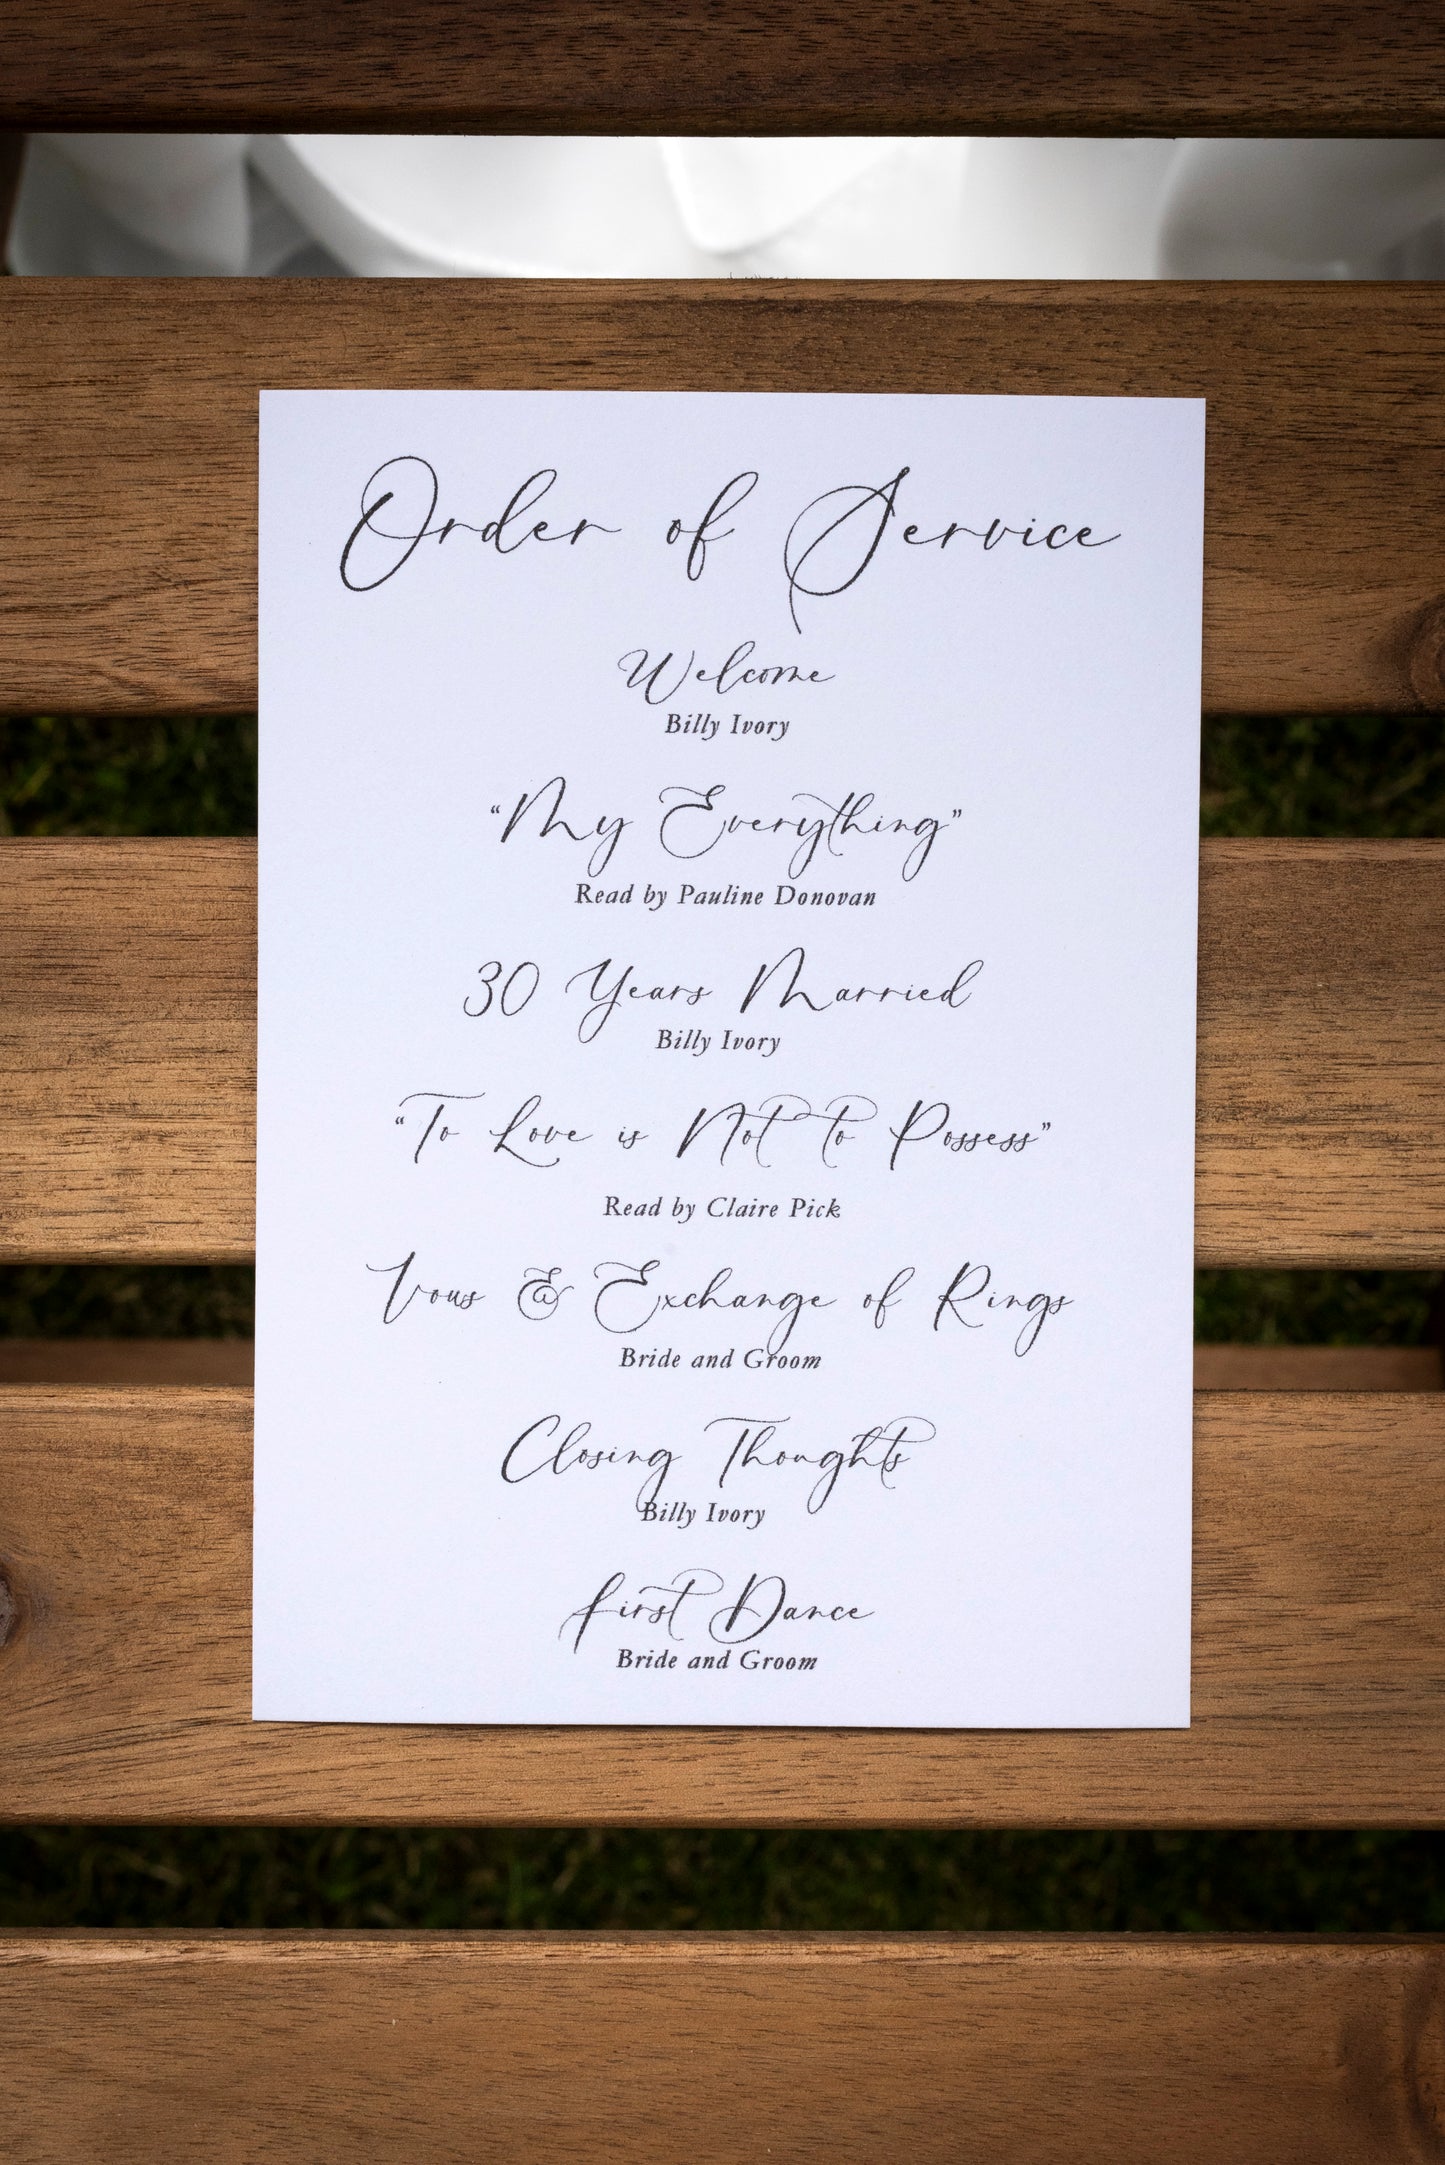 Order of Service
Welcome
Billy Ivory
“My Everything”
Read by Pauline Donovan
30 Years Married
Billy Ivory
“To Love is Not to Possess”
Read by Claire Pick
Vows & Exchange of Rings
Bride and Groom
Closing Thoughts
Billy Ivory
First Dance
Bride and Groom